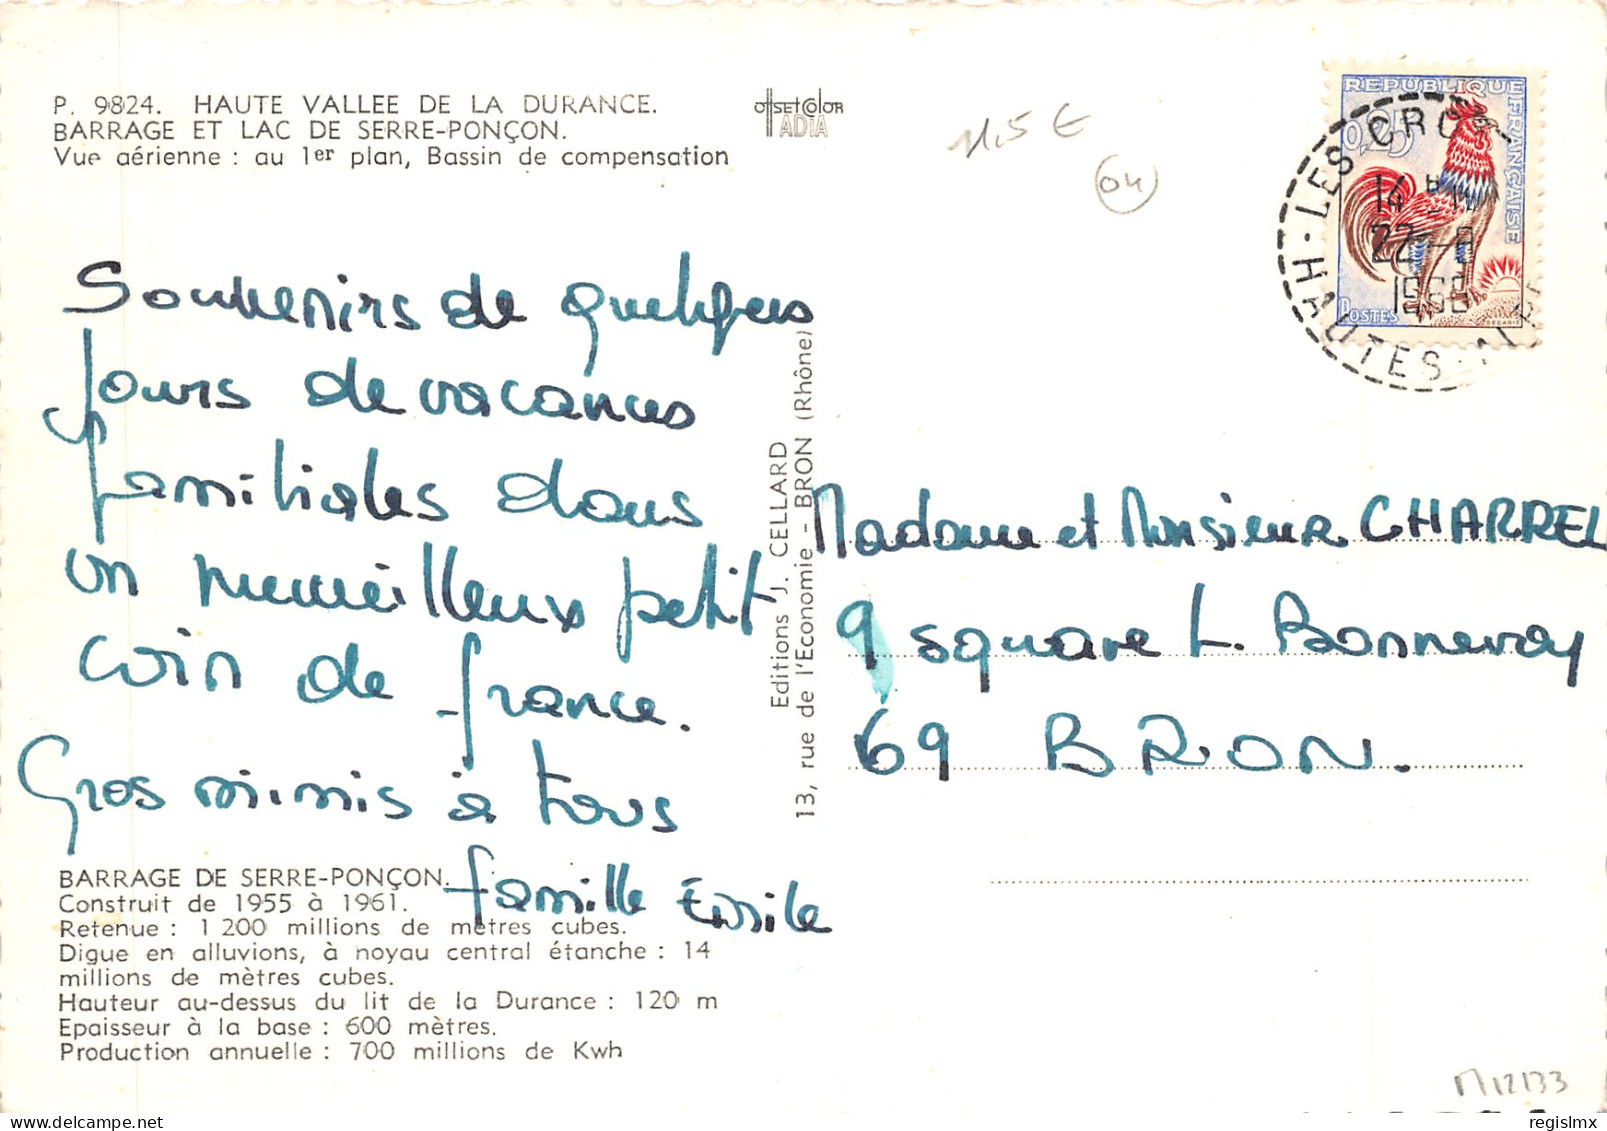 P. 9824. HAUTE VALLEE DE LA DURANCE.
BARRAGE ET LAC DE SERRE-PONÇON.
Vue aérienne : au 1er plan, Bassin de compensation
OffSETCOlOR
ADIA
11.5 €
04
REPUBLIQUE FRANÇAISE
0,25
POSTES
DECARIS
LES CRO
14 H
22 - 8
196
HAUTES-ALPE
Souvenirs de quelques
jours de vacances
familiales dans
un merveilleux petit
coin de france.
Gros mimis à tous
famille Emile
Editions J. CELLARD
13, rue de l'Economie - BRON (Rhône)
Madame et Monsieur CHARREL
9 square L. Bonnevay
69 BRON.
BARRAGE DE SERRE-PONÇON.
Construit de 1955 à 1961.
Retenue : 1 200 millions de mètres cubes.
Digue en alluvions, à noyau central étanche : 14
millions de mètres cubes.
Hauteur au-dessus du lit de la Durance : 120 m
Epaisseur à la base : 600 mètres.
Production annuelle : 700 millions de Kwh
M12133
DELCAMPE.NET
regislmx